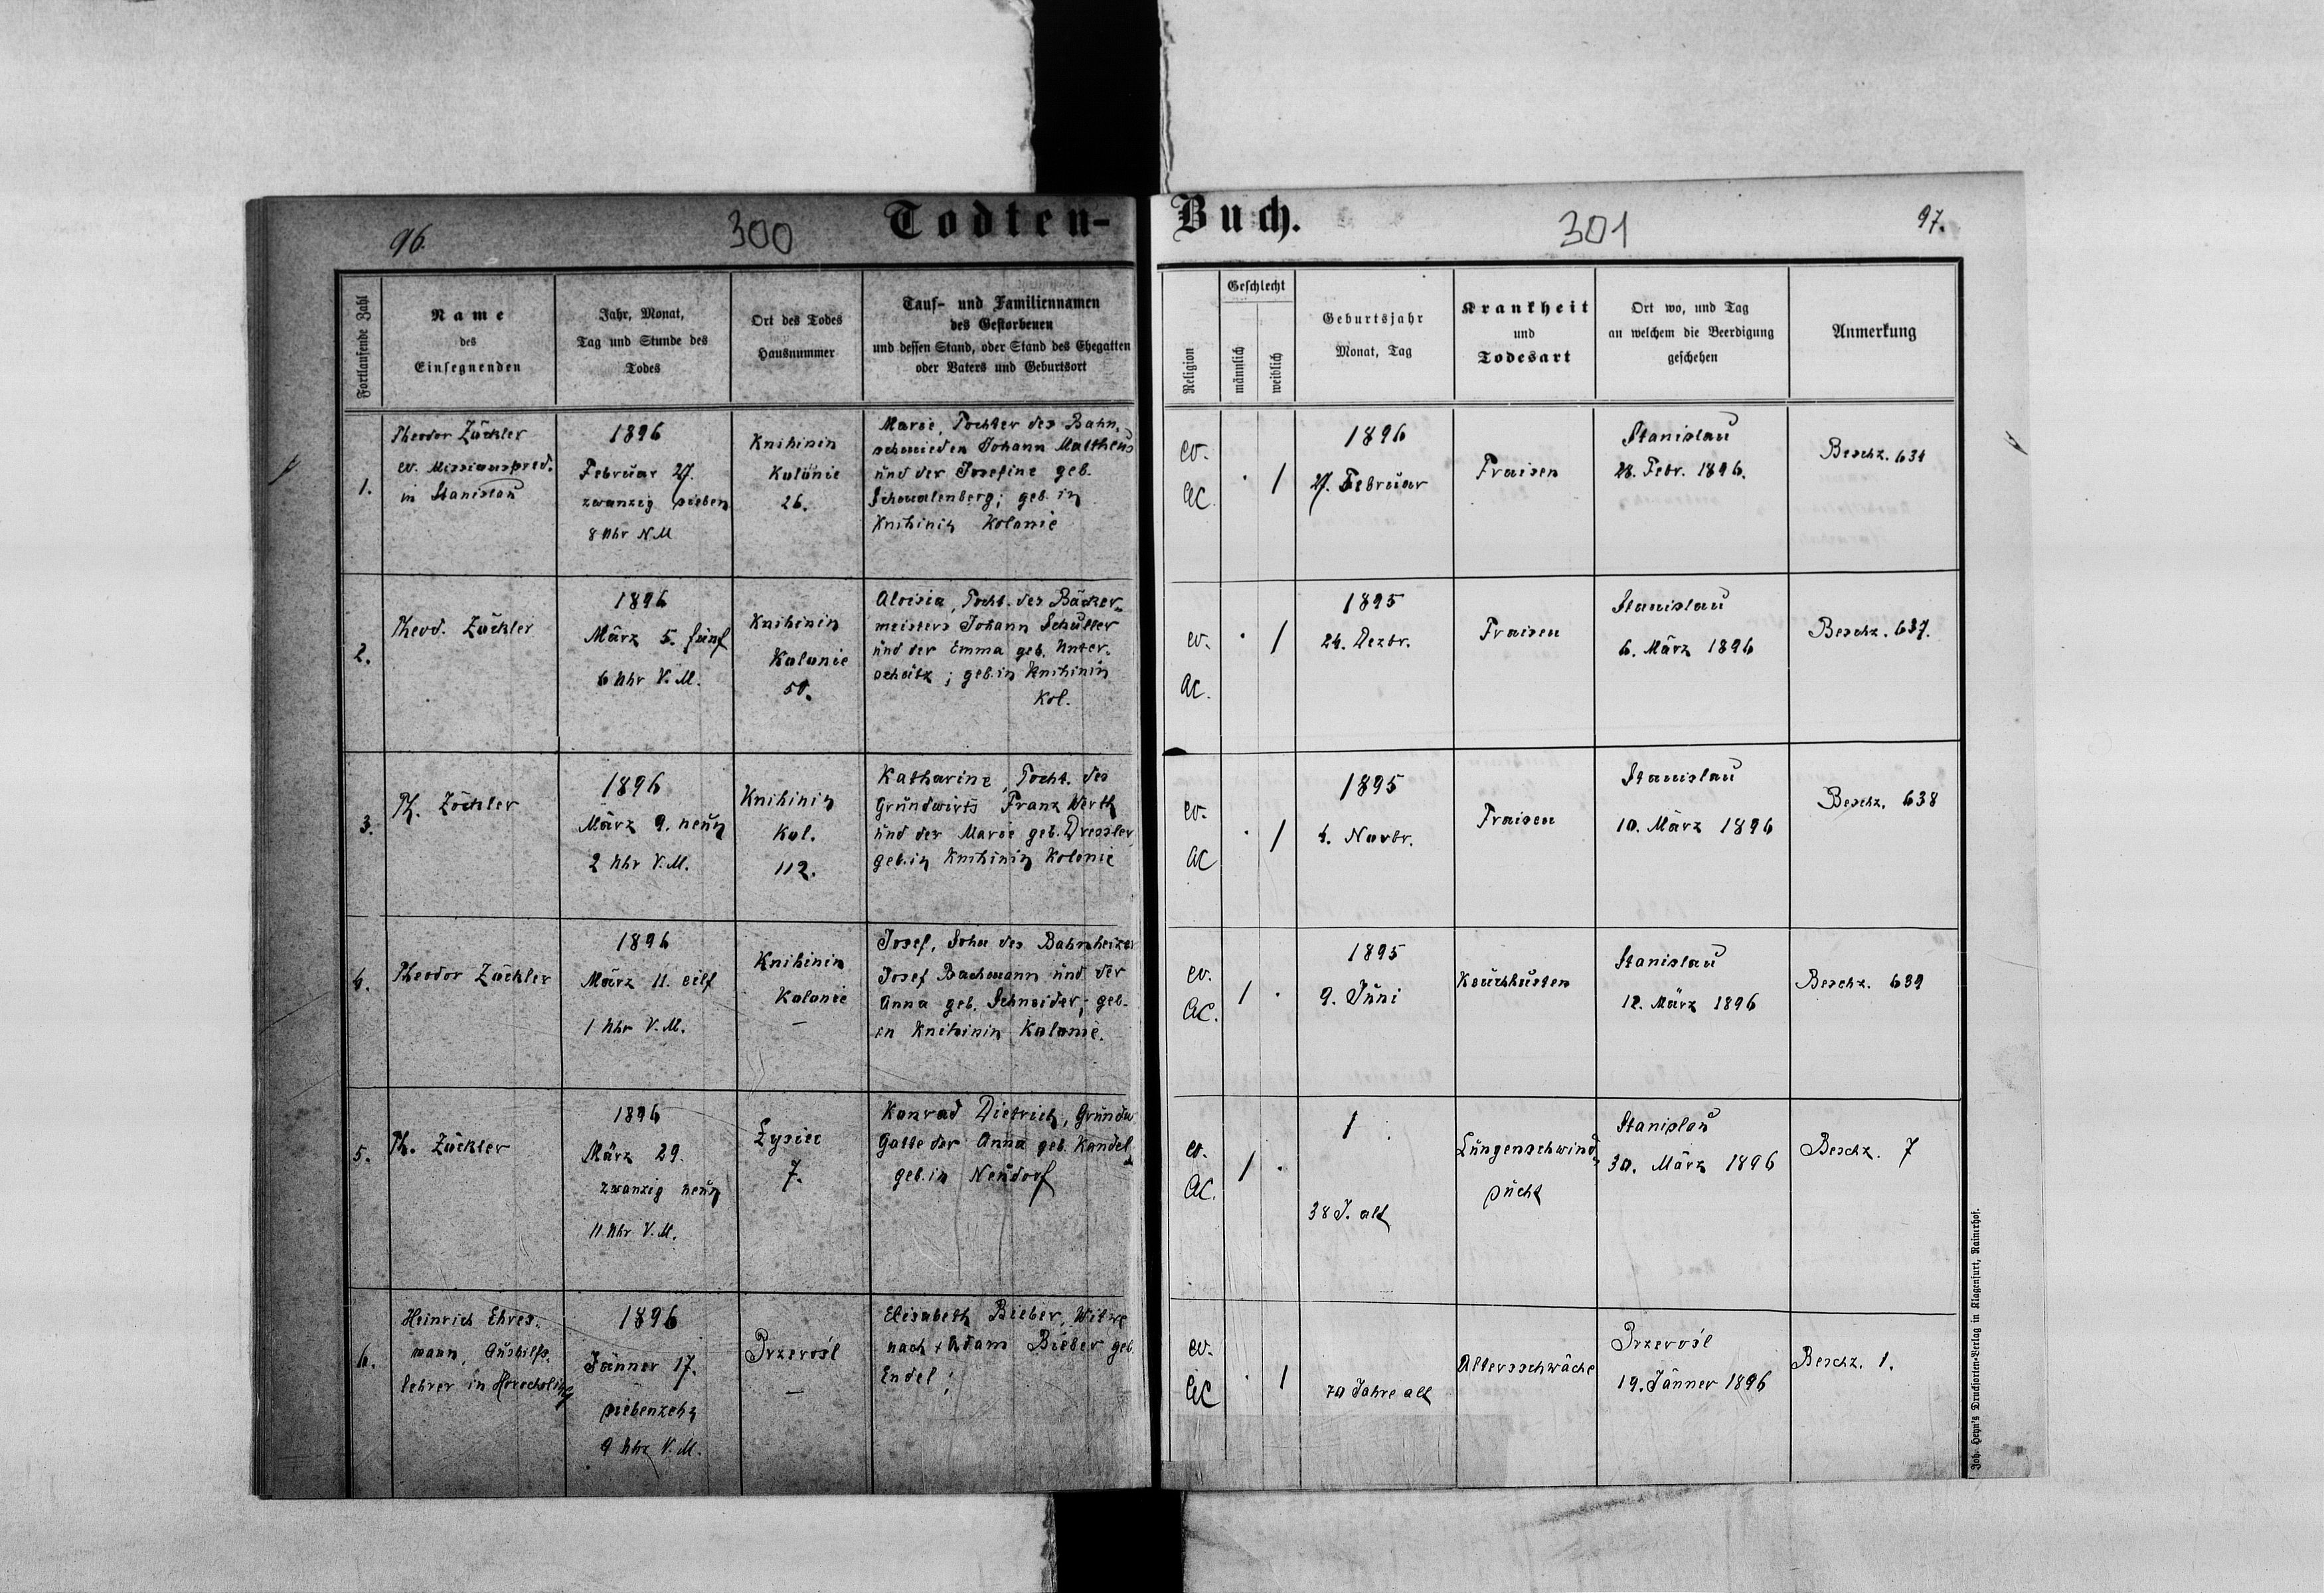 96.
300
Todten-
Fortlaufende Zahl
Name
des
Einsegnenden
Jahr, Monat,
Tag und Stunde des
Todes
Ort des Todes
Hausnummer
Tauf- und Familiennamen
des Gestorbenen
und dessen Stand, oder Stand des Ehegatten
oder Vaters und Geburtsort
1.
Theodor Zöckler
ev. Missionspred.
in Stanislau
1896
Februar 27.
zwanzig sieben
8 Uhr N.M
Knihinin
Kolonie
26.
Marie, Tochter des Bahn-
schmieden Johann Mattheus
und der Josefine geb.
geb. in
Knihinin Kolonie
2.
Theod. Zöckler
1896
März 5. fünf
6 Uhr V.M.
Knihinin
Kolonie
50.
Aloisia, Tocht. des Bäcker-
meisters Johann Schuller
und der Emma geb. Unter-
schütz; geb. in Knihinin
Kol.
3.
Th. Zöckler
1896
März 9. neun
2 Uhr V.M.
Knihinin
Kol.
112.
Katharina, Tocht. des
Grundwirts Franz Werth
und der Marie geb. Dressler
geb. in Knihinin Kolonie
4.
Theodor Zöckler
1896
März 11. eilf
1 Uhr V.M.
Knihinin
Kolonie
–
Josef, Sohn des Bahnheizer
Josef Bachmann und der
Anna geb. Schneider; geb.
in Knihinin Kolonie.
5.
Th. Zöckler
1896
März 29.
zwanzig neun
11 Uhr V.M.
Łysiec
7.
Konrad Dietrich, Grundw.
Gatte der Anna geb. Kandel
geb. in Neudorf
6.
Heinrich Ehres-
mann, Aushilfs-
lehrer in
1896
Jänner 17.
siebenzehn
9 Uhr V.M.
Przerośl
–
Elisabeth Bieber, Witwe
nach † Adam Bieber geb.
Endel;
Buch.
301
97.
Religion
Geschlecht
männlich
weiblich
Geburtsjahr
Monat, Tag
Krankheit
und
Todesart
Ort wo, und Tag
an welchem die Beerdigung
geschehen
Anmerkung
ev.
AC.
· /
1896
27. Februar
Fraisen
Stanislau
28. Febr. 1896.
Beschz. 634
ev.
AC.
· /
1895
24. Dezbr.
Fraisen
Stanislau
6. März 1896
Beschz. 637.
ev.
AC
· /
1895
4. Novbr.
Fraisen
Stanislau
10. März 1896
Beschz. 638
ev.
AC.
/ ·
1895
9. Juni
Keuchhusten
Stanislau
12. März 1896
Beschz. 639
ev.
AC.
/ ·
/
38 J. alt
Lungenschwind-
sucht
Stanislau
30. März 1896
Beschz. 7
ev.
AC
· /
70 Jahre alt
Altersschwäche
Przerośl
19. Jänner 1896
Beschz. 1.
Joh. Heyn's Drucksorten-Verlag in Klagenfurt, Rainerhof.